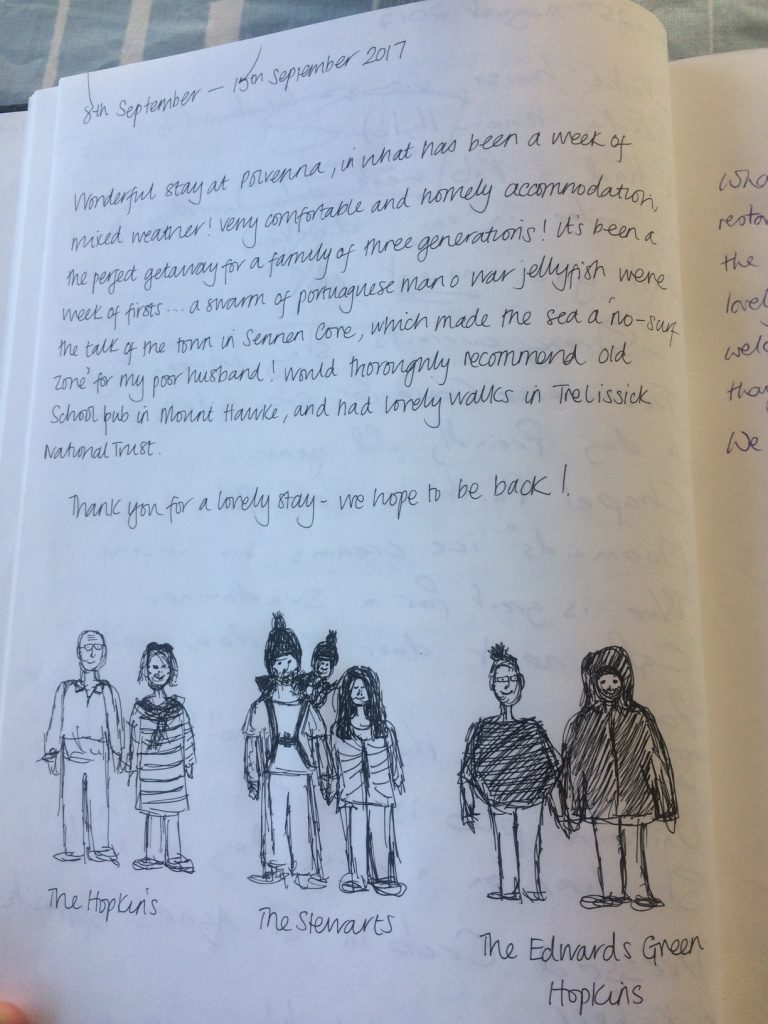 8th September – 15th September 2017
Wonderful stay at Polvenna, in what has been a week of
mixed weather! Very comfortable and homely accommodation,
the perfect getaway for a family of three generations! It's been a
week of firsts... a swarm of portuguese man o war jellyfish were
the talk of the town in Sennen Cove, which made the sea a 'no-surf
zone' for my poor husband! Would thoroughly recommend Old
School pub in Mount Hawke, and had lovely walks in Trelissick
National Trust.
Thank you for a lovely stay - we hope to be back!
The Hopkin's
The Stewarts
The Edwards Green
Hopkins
the
We